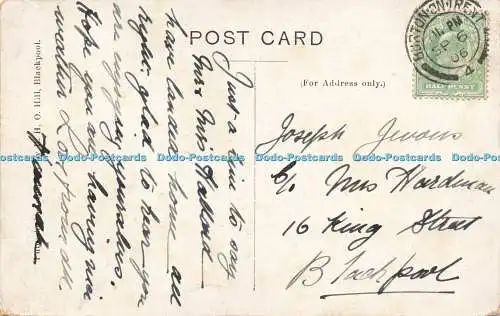 POST CARD
(For Address only.)
H. O. Hill, Blackpool.
BURTON-ON-TRENT
11. PM
SP 6
06
4
HALFPENNY
Just a line to say
Mr & Mrs
have landed home all
right glad to hear you
are enjoying yourselves.
Hope you are having nice
weather Love from all
Joseph Jevons
C/o Mrs Hardman
16 King Street
Blackpool
Dodo-Postcards Dodo-Postcards Dodo-Postcards Dodo-Postcards Dodo-Postcards Dodo-Postcards